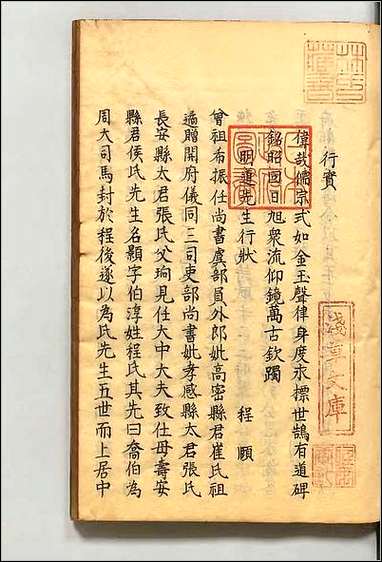 行實
偉哉儒宗式如金玉聲律身度永標世鵠有道碑
銘昭回日旭衆流仰鏡萬古欽躅
明道先生行狀 程頤
曾祖布振任尚書虞部員外郎妣高密縣君崔氏祖
遹贈開府儀同三司吏部尚書妣孝感縣太君張氏
長安縣太君張氏父珦見任大中大夫致仕母壽安
縣君侯氏先生名顥字伯淳姓程氏其先曰喬伯為
周大司馬封於程後遂以為氏先生五世而上居中
淺草文庫
林氏藏書